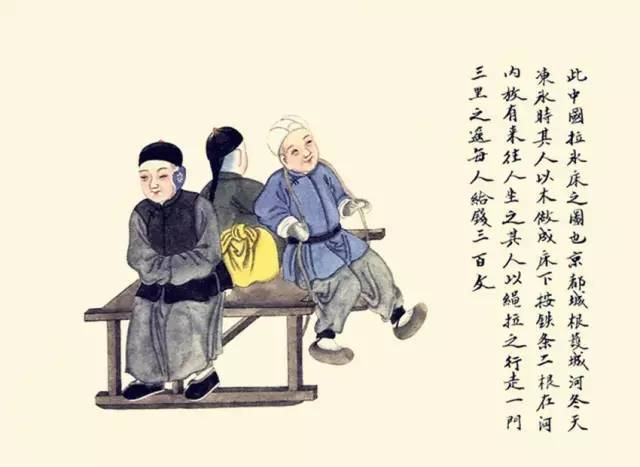 此中國拉氷床之圖也京都城根護城河冬天
凍氷時其人以木做成床下按鉄条二根在河
内放有来往人坐之其人以繩拉之行走一門
三里之遥每人給錢三百文